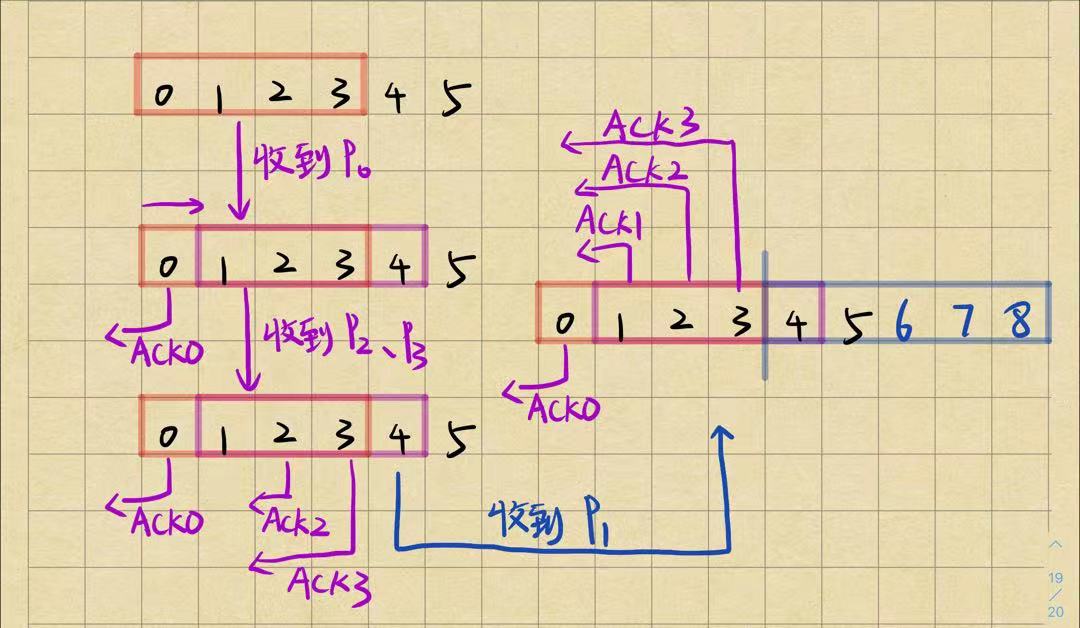 0 1 2 3 4 5
收到 P₀
0 1 2 3 4 5
ACK0
收到 P₂、P₃
0 1 2 3 4 5
ACK0
ACK2
ACK3
收到 P₁
ACK3
ACK2
ACK1
0 1 2 3 4 5 6 7 8
ACK0
19
/
20